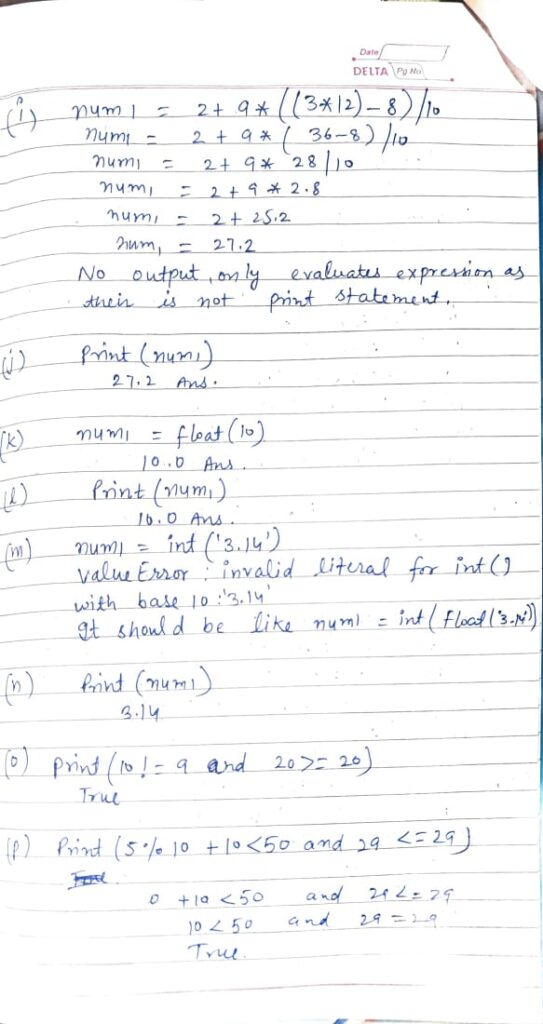 Date
DELTA Pg No
(i) num1 = 2+ 9*((3*12)-8)/10
num1 = 2 + 9*( 36-8)/10
num1 = 2+ 9* 28/10
num1 = 2+9*2.8
num1 = 2+25.2
num1 = 27.2
No output, only evaluates expression as
their is not print statement.
(j) Print (num1)
27.2 Ans.
(k) num1 = float(10)
10.0 Ans.
(l) Print (num1)
10.0 Ans.
(m) num1 = int ('3.14')
Value Error : invalid literal for int()
with base 10 :'3.14'
It should be like num1 = int(float('3.14'))
(n) Print (num1)
3.14
(o) Print (10!= 9 and 20>= 20)
True
(p) Print (5%10 +10<50 and 29 <=29)
0 +10 <50 and 29<=29
10<50 and 29=29
True.